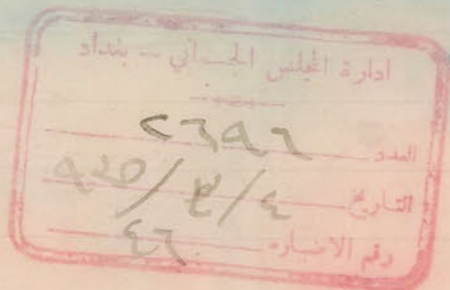 ادارة المجلس الجسماني — بغداد
العدد ٢٦٩٦
التاريخ ٩٣٥/٣/٤
رقم الاضبارة ٤٦